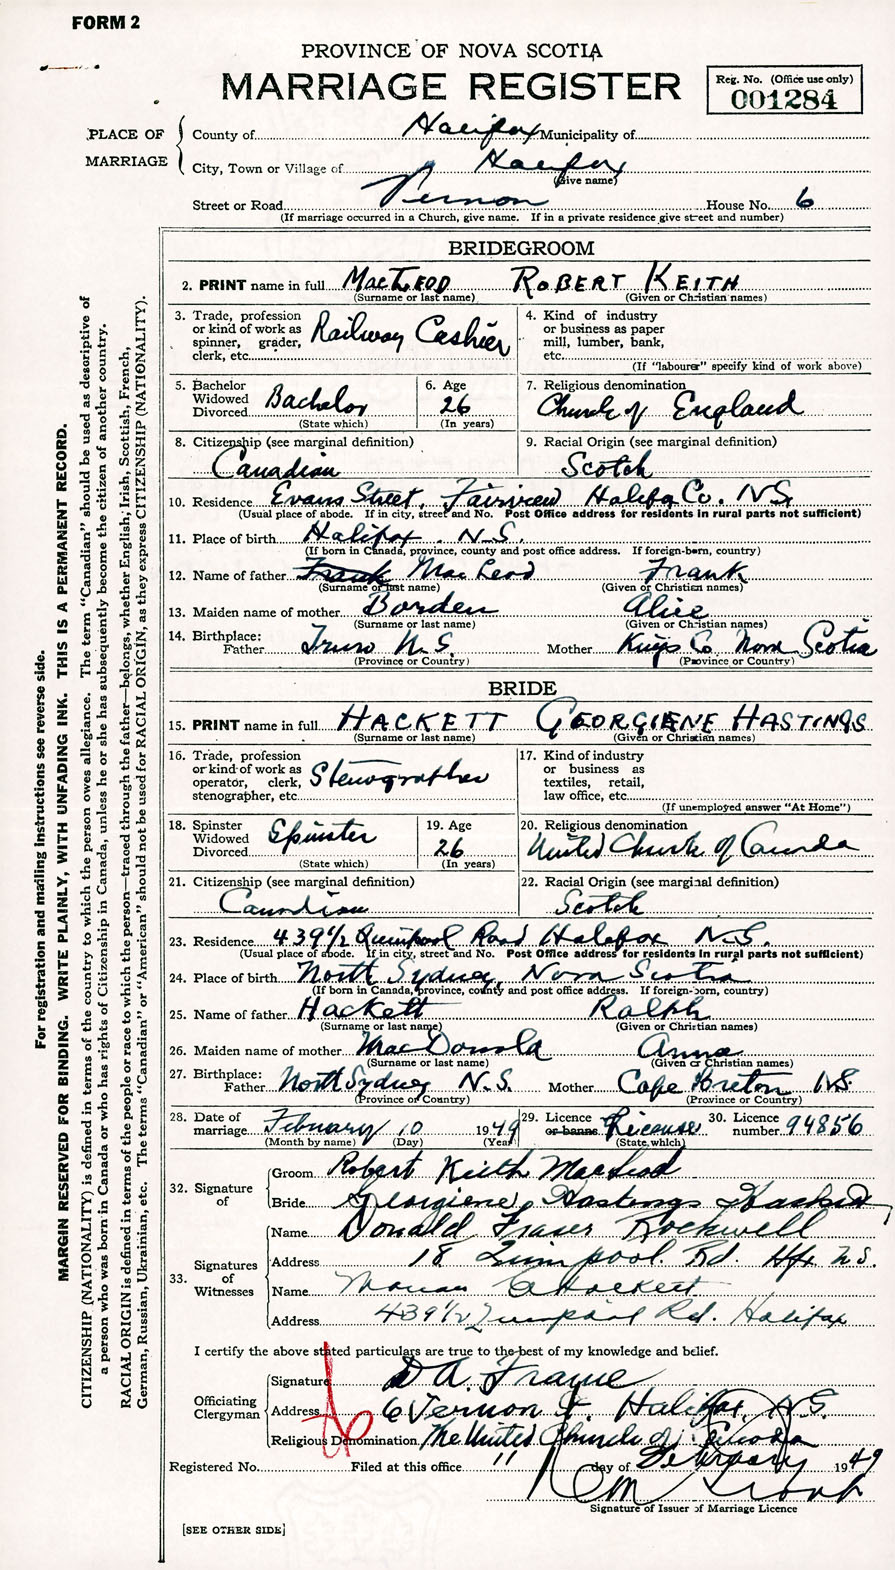 FORM 2
PROVINCE OF NOVA SCOTIA
MARRIAGE REGISTER
Reg. No. (Office use only)
001284
PLACE OF MARRIAGE
County of Halifax Municipality of
City, Town or Village of Halifax
(Give name)
Street or Road Vernon House No. 6
(If marriage occurred in a Church, give name. If in a private residence give street and number)
BRIDEGROOM
2. PRINT name in full MacLeod Robert Keith
(Surname or last name) (Given or Christian names)
3. Trade, profession or kind of work as spinner, grader, clerk, etc. Railway Cashier
4. Kind of industry or business as paper mill, lumber, bank, etc.
(If "labourer" specify kind of work above)
5. Bachelor Widowed Divorced Bachelor
(State which)
6. Age 26
(In years)
7. Religious denomination
Church of England
8. Citizenship (see marginal definition)
Canadian
9. Racial Origin (see marginal definition)
Scotch
10. Residence Evans Street, Fairview Halifax Co. N.S.
(Usual place of abode. If in city, street and No. Post Office address for residents in rural parts not sufficient)
11. Place of birth Halifax N.S.
(If born in Canada, province, county and post office address. If foreign-born, country)
12. Name of father Frank MacLeod Frank
(Surname or last name) (Given or Christian names)
13. Maiden name of mother Borden Alice
(Surname or last name) (Given or Christian names)
14. Birthplace:
Father Truro N.S. Mother Kings Co Nova Scotia
(Province or Country) (Province or Country)
BRIDE
15. PRINT name in full HACKETT GEORGIENE HASTINGS
(Surname or last name) (Given or Christian names)
16. Trade, profession or kind of work as operator, clerk, stenographer, etc. Stenographer
17. Kind of industry or business as textiles, retail, law office, etc.
(If unemployed answer "At Home")
18. Spinster Widowed Divorced Spinster
(State which)
19. Age 26
(In years)
20. Religious denomination
United Church of Canada
21. Citizenship (see marginal definition)
Canadian
22. Racial Origin (see marginal definition)
Scotch
23. Residence 439 1/2 Quinpool Road Halifax N.S.
(Usual place of abode. If in city, street and No. Post Office address for residents in rural parts not sufficient)
24. Place of birth North Sydney, Nova Scotia
(If born in Canada, province, county and post office address. If foreign-born, country)
25. Name of father Hackett Ralph
(Surname or last name) (Given or Christian names)
26. Maiden name of mother MacDonald Anna
(Surname or last name) (Given or Christian names)
27. Birthplace:
Father North Sydney N.S. Mother Cape Breton N.S.
(Province or Country) (Province or Country)
28. Date of marriage February 10 1949
(Month by name) (Day) (Year)
29. Licence or banns License
(State which)
30. Licence number 94856
32. Signature of
Groom Robert Keith MacLeod
Bride Georgiene Hastings Hackett
33. Signatures of Witnesses
Name Donald Fraser Rockwell
Address 18 Quinpool Rd. Hfx N.S.
Name Hackett
Address 439 1/2 Quinpool Rd. Halifax
I certify the above stated particulars are true to the best of my knowledge and belief.
Officiating Clergyman
Signature D A. Frame
Address 6 Vernon St. Halifax, N.S.
Religious Denomination The United Church of Canada
Registered No. Filed at this office 11 day of February 1949
Signature of Issuer of Marriage Licence
[SEE OTHER SIDE]
For registration and mailing instructions see reverse side.
MARGIN RESERVED FOR BINDING. WRITE PLAINLY, WITH UNFADING INK. THIS IS A PERMANENT RECORD.
CITIZENSHIP (NATIONALITY) is defined in terms of the country to which the person owes allegiance. The term "Canadian" should be used as descriptive of
a person who was born in Canada or who has rights of Citizenship in Canada, unless he or she has subsequently become the citizen of another country.
RACIAL ORIGIN is defined in terms of the people or race to which the person—traced through the father—belongs, whether English, Irish, Scottish, French,
German, Russian, Ukrainian, etc. The terms "Canadian" or "American" should not be used for RACIAL ORIGIN, as they express CITIZENSHIP (NATIONALITY).